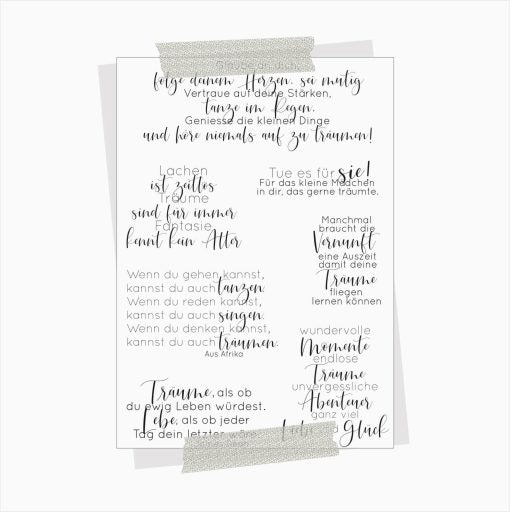 folge deinem Herzen, sei mutig
Vertraue auf deine Stärken,
tanze im Regen,
Geniesse die kleinen Dinge
und höre niemals auf zu träumen!
Lachen
ist zeitlos
Träume
sind für immer
Fantasie
kennt kein Alter
Tue es für sie!
Für das kleine Mädchen
in dir, das gerne träumte.
Manchmal
braucht die
Vernunft
eine Auszeit
damit deine
Träume
fliegen
lernen können
Wenn du gehen kannst,
kannst du auch tanzen.
Wenn du reden kannst,
kannst du auch singen.
Wenn du denken kannst,
kannst du auch träumen.
Aus Afrika
wundervolle
Momente
endlose
Träume
unvergessliche
Abenteuer
ganz viel
Glück
Träume, als ob
du ewig Leben würdest.
Lebe, als ob jeder
Tag dein letzter wäre.